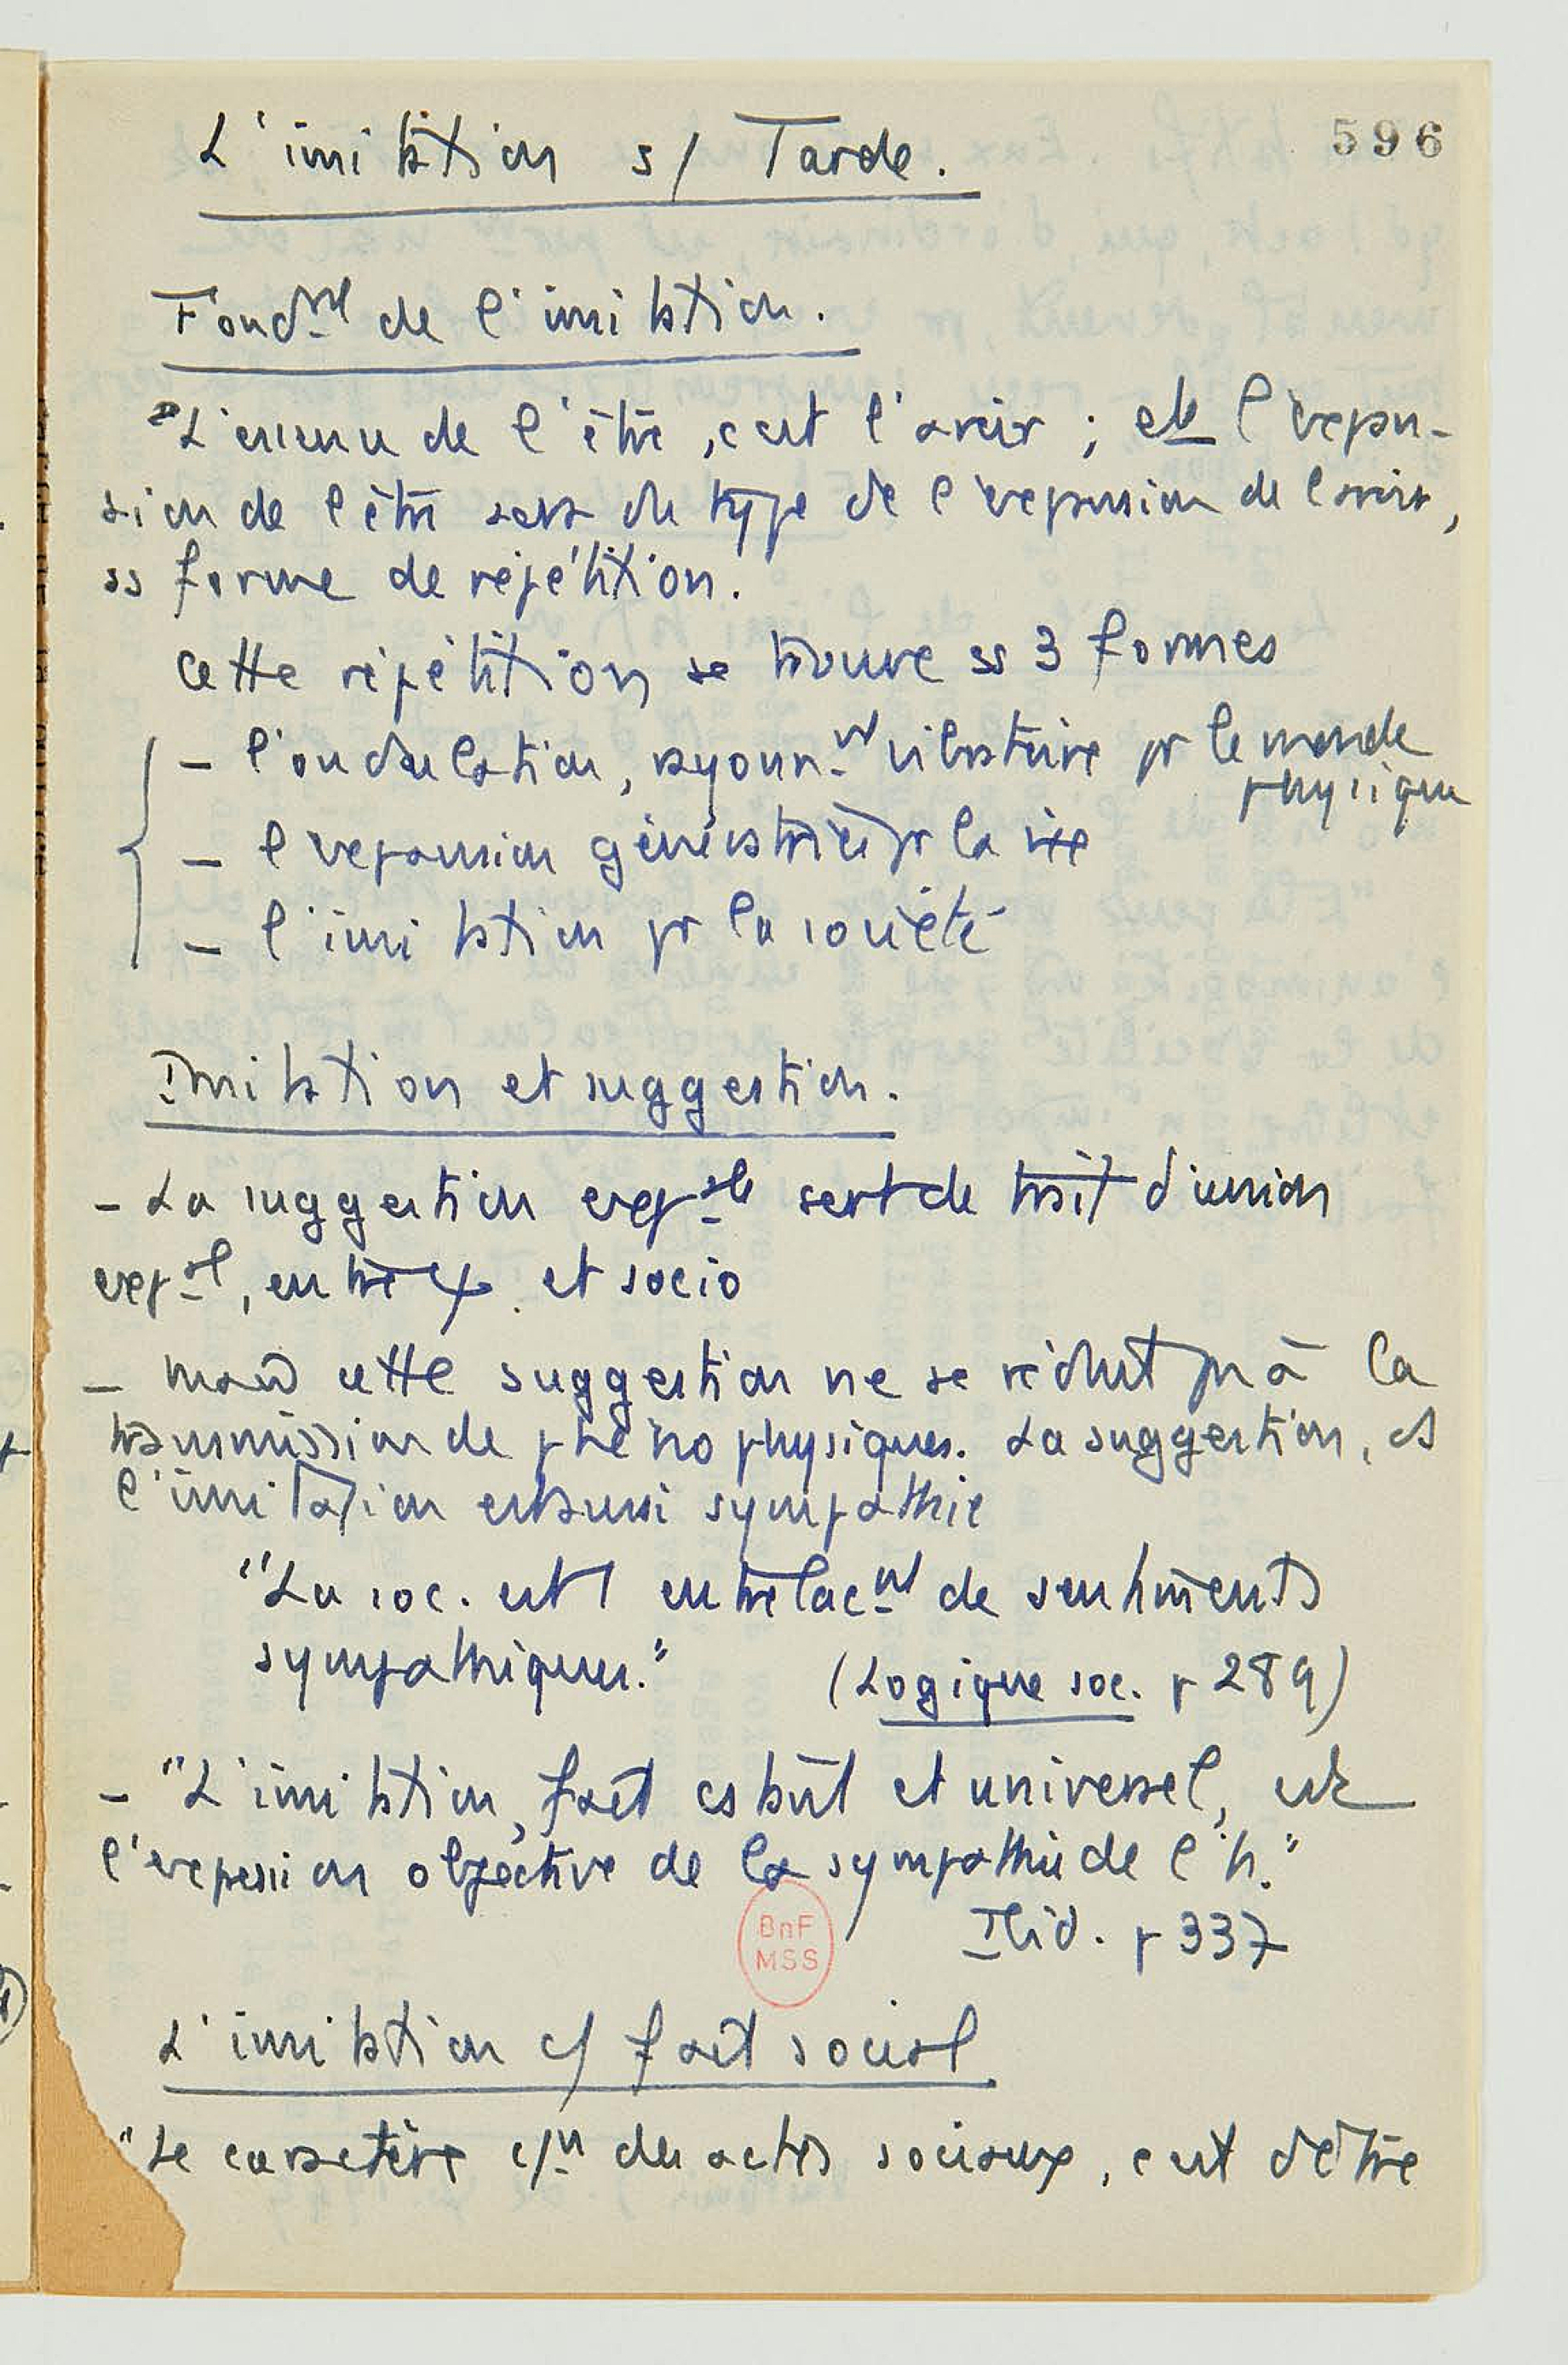 596
L'imitation s/ Tarde.
Fondmt de l'imitation.
"L'essence de l'être, c'est l'avoir ; et l'expan-
sion de l'être sera du type de l'expansion de l'avoir,
ss forme de répétition.
Cette répétition se trouve ss 3 formes
- l'ondulation, rayonnnt vibratoire pr le monde
physique
- l'expansion génératrice pr la vie
- l'imitation pr la société
Imitation et suggestion.
- La suggestion expale sert de trait d'union
expal, entre ψ. et socio
- mais cette suggestion ne se réduit pas à la
transmission de phéno physiques. La suggestion, et
l'imitation est aussi sympathie
"La soc. est 1 entrelacnt de sentiments
sympathiques."
(Logique soc. p 289)
- "L'imitation, fait est et universel, est
l'expression objective de la sympathie de l'h."
Ibid. p 337
BnF
MSS
L'imitation c/ fait social
"Le caractère c/n des actes sociaux, c'est d'être